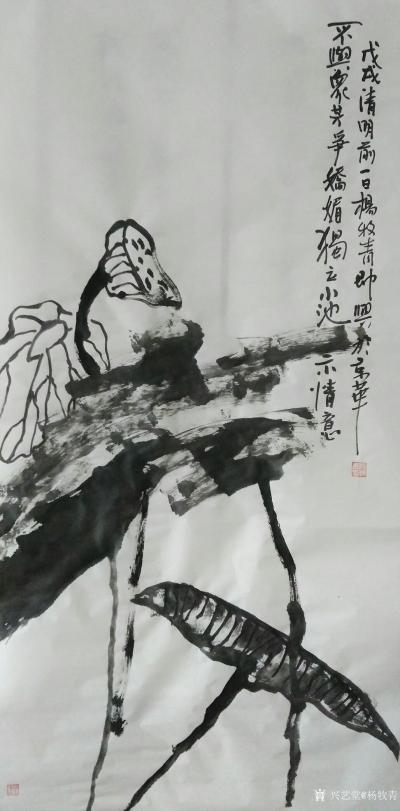 不與衆芳爭嬌媚獨立小池示情意
戊戌清明前一日楊牧青即興于京華
兴艺堂@杨牧青